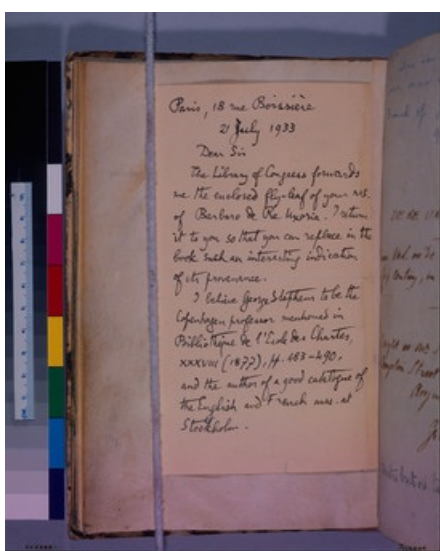 Paris, 18 rue Boissière
21 July 1933
Dear Sir
The Library of Congress forwards
me the enclosed fly-leaf of your ms.
of Barbaro de Re Uxoria. I return
it to you so that you can replace in the
book such an interesting indication
of its provenance.
I believe George Stephens to be the
Copenhagen professor mentioned in
Bibliothèque de l'Ecole des Chartes,
XXXVIII (1877), pp. 483-490,
and the author of a good catalogue of
the English and French mss. at
Stockholm.